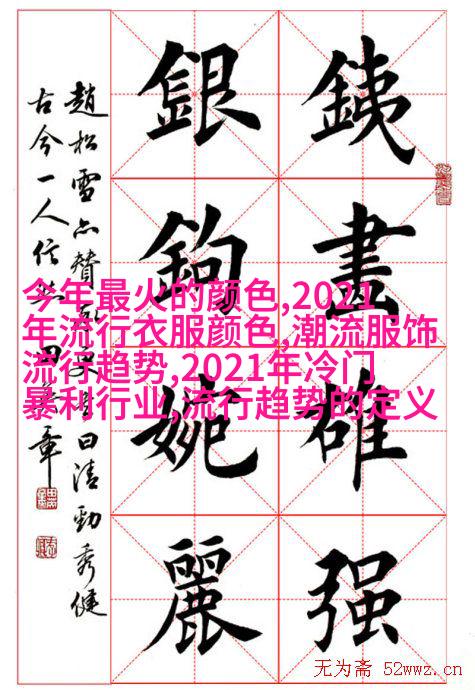 銕畫雄强
銀鉤婉麗
趙松雪亦贊曰清勁秀健
古今一人信然 田英章
今年最火的颜色,2021
年流行衣服颜色,潮流服饰
流行趋势,2021年冷门
暴利行业,流行趋势的定义
无为斋 52wwz.cn